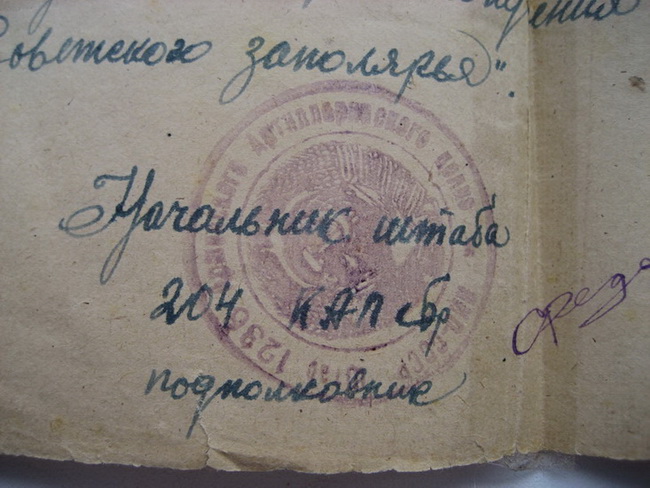 Советского заполярья".
Начальник штаба
204 КАП сбр
подполковник
Артиллерийского полка